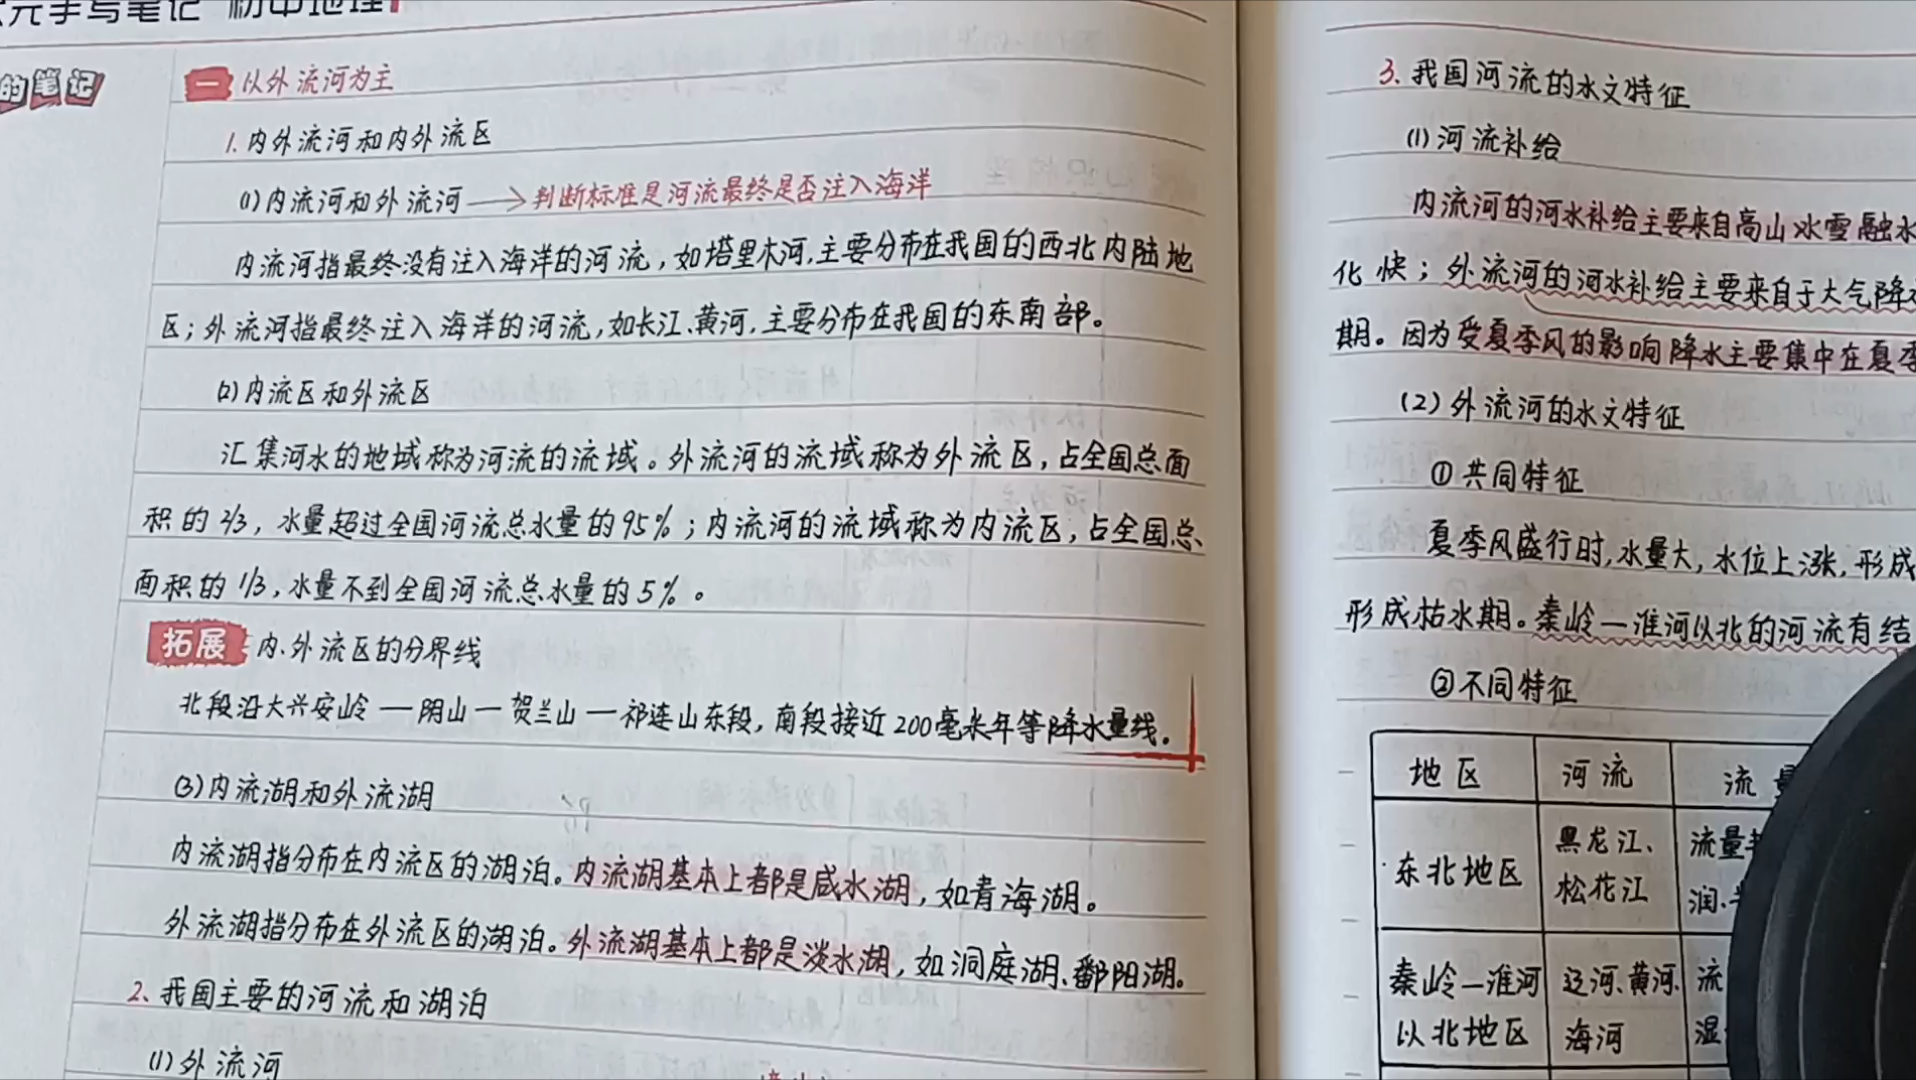 元手写笔记 初中地理
的笔记
一 以外流河为主
1. 内外流河和内外流区
(1)内流河和外流河 → 判断标准是河流最终是否注入海洋
内流河指最终没有注入海洋的河流,如塔里木河,主要分布在我国的西北内陆地
区;外流河指最终注入海洋的河流,如长江、黄河,主要分布在我国的东南部。
(2)内流区和外流区
汇集河水的地域称为河流的流域。外流河的流域称为外流区,占全国总面
积的2/3,水量超过全国河流总水量的95%;内流河的流域称为内流区,占全国总
面积的1/3,水量不到全国河流总水量的5%。
拓展 内、外流区的分界线
北段沿大兴安岭—阴山—贺兰山—祁连山东段,南段接近200毫米年等降水量线。
(3)内流湖和外流湖
内流湖指分布在内流区的湖泊。内流湖基本上都是咸水湖,如青海湖。
外流湖指分布在外流区的湖泊。外流湖基本上都是淡水湖,如洞庭湖、鄱阳湖。
2. 我国主要的河流和湖泊
(1)外流河
3. 我国河流的水文特征
(1)河流补给
内流河的河水补给主要来自高山冰雪融水
化快;外流河的河水补给主要来自于大气降
期。因为受夏季风的影响降水主要集中在夏季
(2)外流河的水文特征
①共同特征
夏季风盛行时,水量大,水位上涨,形成
形成枯水期。秦岭—淮河以北的河流有结
②不同特征
地区 河流 流
东北地区 黑龙江、 流量
松花江 润、
秦岭—淮河 辽河、黄河、 流
以北地区 海河 湿